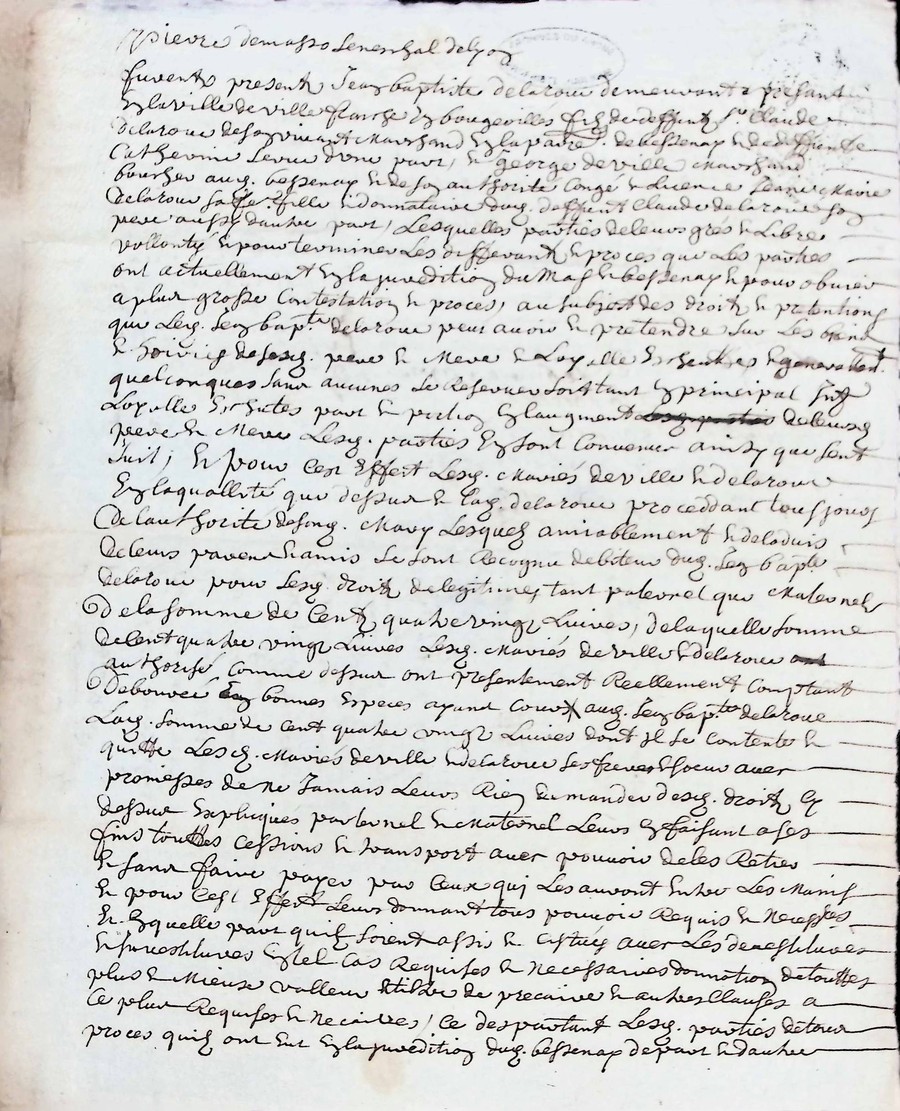 pierre demasso seneschal delyon
furent present Jean baptiste delaroue demeurant a present
En la ville de ville franche En bougeollois fils de deffunt Sr Claude
delaroue de son vivant Marchand En la parre. de bessenay & de deffunte
Catherine d'une part, & george deville Marchand
boucher aud. bessenay & de son authorité Congé & Licence Jeanne Marie
delaroue sa fe. fille & donnataire dud. deffunt Claude delaroue son
pere aussy dautre part, Lesquelles parties de leurs grés & Libre
vollonté & pour terminer Les differants & proces que Les parties
ont actuellement En la juredition du Mas & bessenay & pour obvier
a plus grosse Contestation & proces, au subjet des droits & pretentions
que Led. Jean bapte. delaroue peut avoir & pretendre sur Les biens
& de sesd. pere & Mere & & generallemt.
quelconques sans aucunes se Reserver soit tant En principal
part & En laugment de leursd
pere & Mere Lesd. parties En sont Convenus ainsy que sent
suit, & pour Cest Effect Lesd. Mariés deville & delaroue
En la quallité que dessus & lad. delaroue proceddant tousjours
de lauthorité de sond. Mary Lesquels amiablement & de laduis
de leurs parens & amis se sont Recognu debiteur dud. Jean bapte
delaroue pour Lesd. droits de legitimes tant paternel que Maternels
de la somme de Cent quatre vingt Livres, de laquelle somme
de Cent quatre vingt Livres Lesd. Mariés deville & delaroue
authorisé comme dessus ont presentement Reellement Comptant
debourcé En bonnes Especes ayant Cours aud. Jean bapte. delaroue
Lad. somme de Cent quatre vingt Livres dont Il se Contente &
quitte Lesd. Mariés deville & delaroue ses frere & soeur avec
promesses de ne Jamais Leurs Rien demander desd. droits Cy
dessus Expliqués paternel & Maternel Leurs En faisant a ses
fins touttes Cessions & transport avec pouvoir de les Retirer
& sans faire payer par Ceux qui Les auront Entre Les Mains
& pour Cest Effect Leurs donnant tous pouvoir Requis & Necessres
& En quelle part quils soient assis & avec Les
En tel Cas Requises & Necessaires donnation de touttes
plus & Mieux valleur de precaire & autres Clauses a
Ce plus Requises & , Ce despartant Lesd. parties de tous
proces quils ont Eut En la juredition dud. bessenay de part & dautre